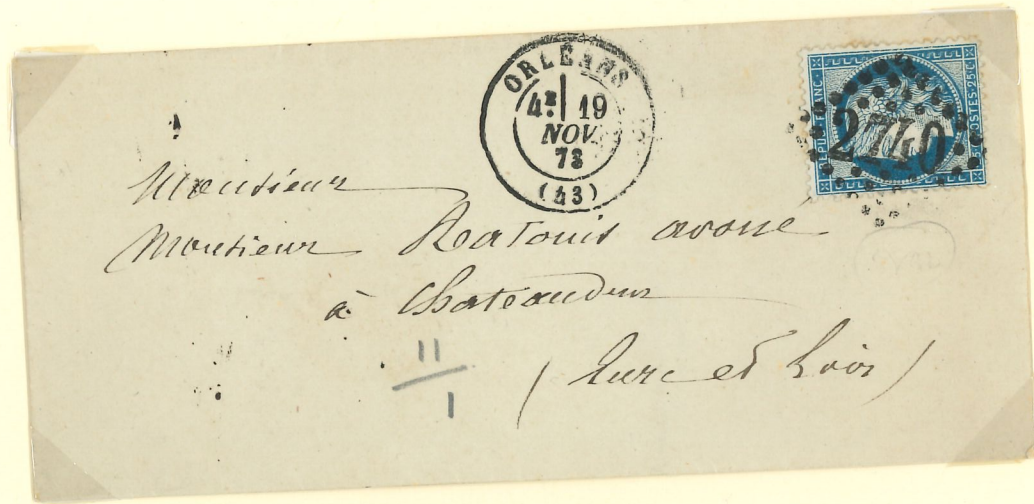 ORLÉANS
4E 19
NOV.
73
(43)
REPUB · FRANC ·
POSTES · 25 C
2740
Monsieur
Monsieur Ratouis avoué
à Chateaudun
(Eure et Loir)
11
1